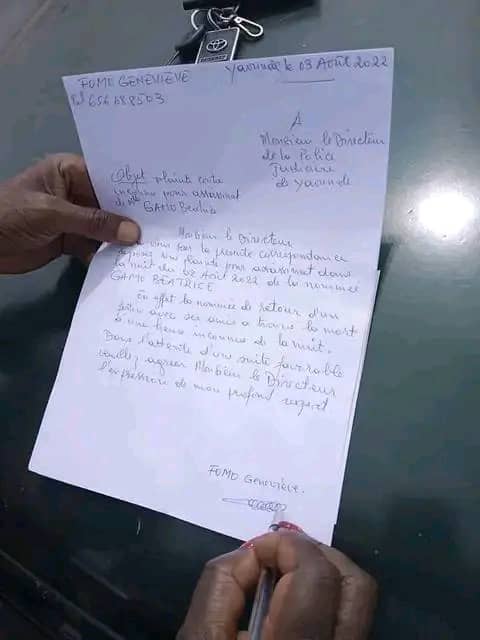 FOMO GENEVIÈVE
Tel 656 688503
Yaounde le 03 Août 2022
À
Monsieur le Directeur
de la Police
Judiciaire
de Yaounde
Objet plainte contre
inconnu pour assassinat
de Mlle GAMO Beatrice
Monsieur le Directeur
viens par la présente correspondance
déposer une plainte pour assassinat dans
la nuit du 02 Août 2022 de la nommée
GAMO BÉATRICE
En effet la nommée de retour d'un
avec ses amis a trouvé la mort
à une heure inconnue de la nuit.
Dans l'attente d'une suite favorable
veuillez agréer Monsieur le Directeur
l'expression de mon profond respect
FOMO Geneviève.